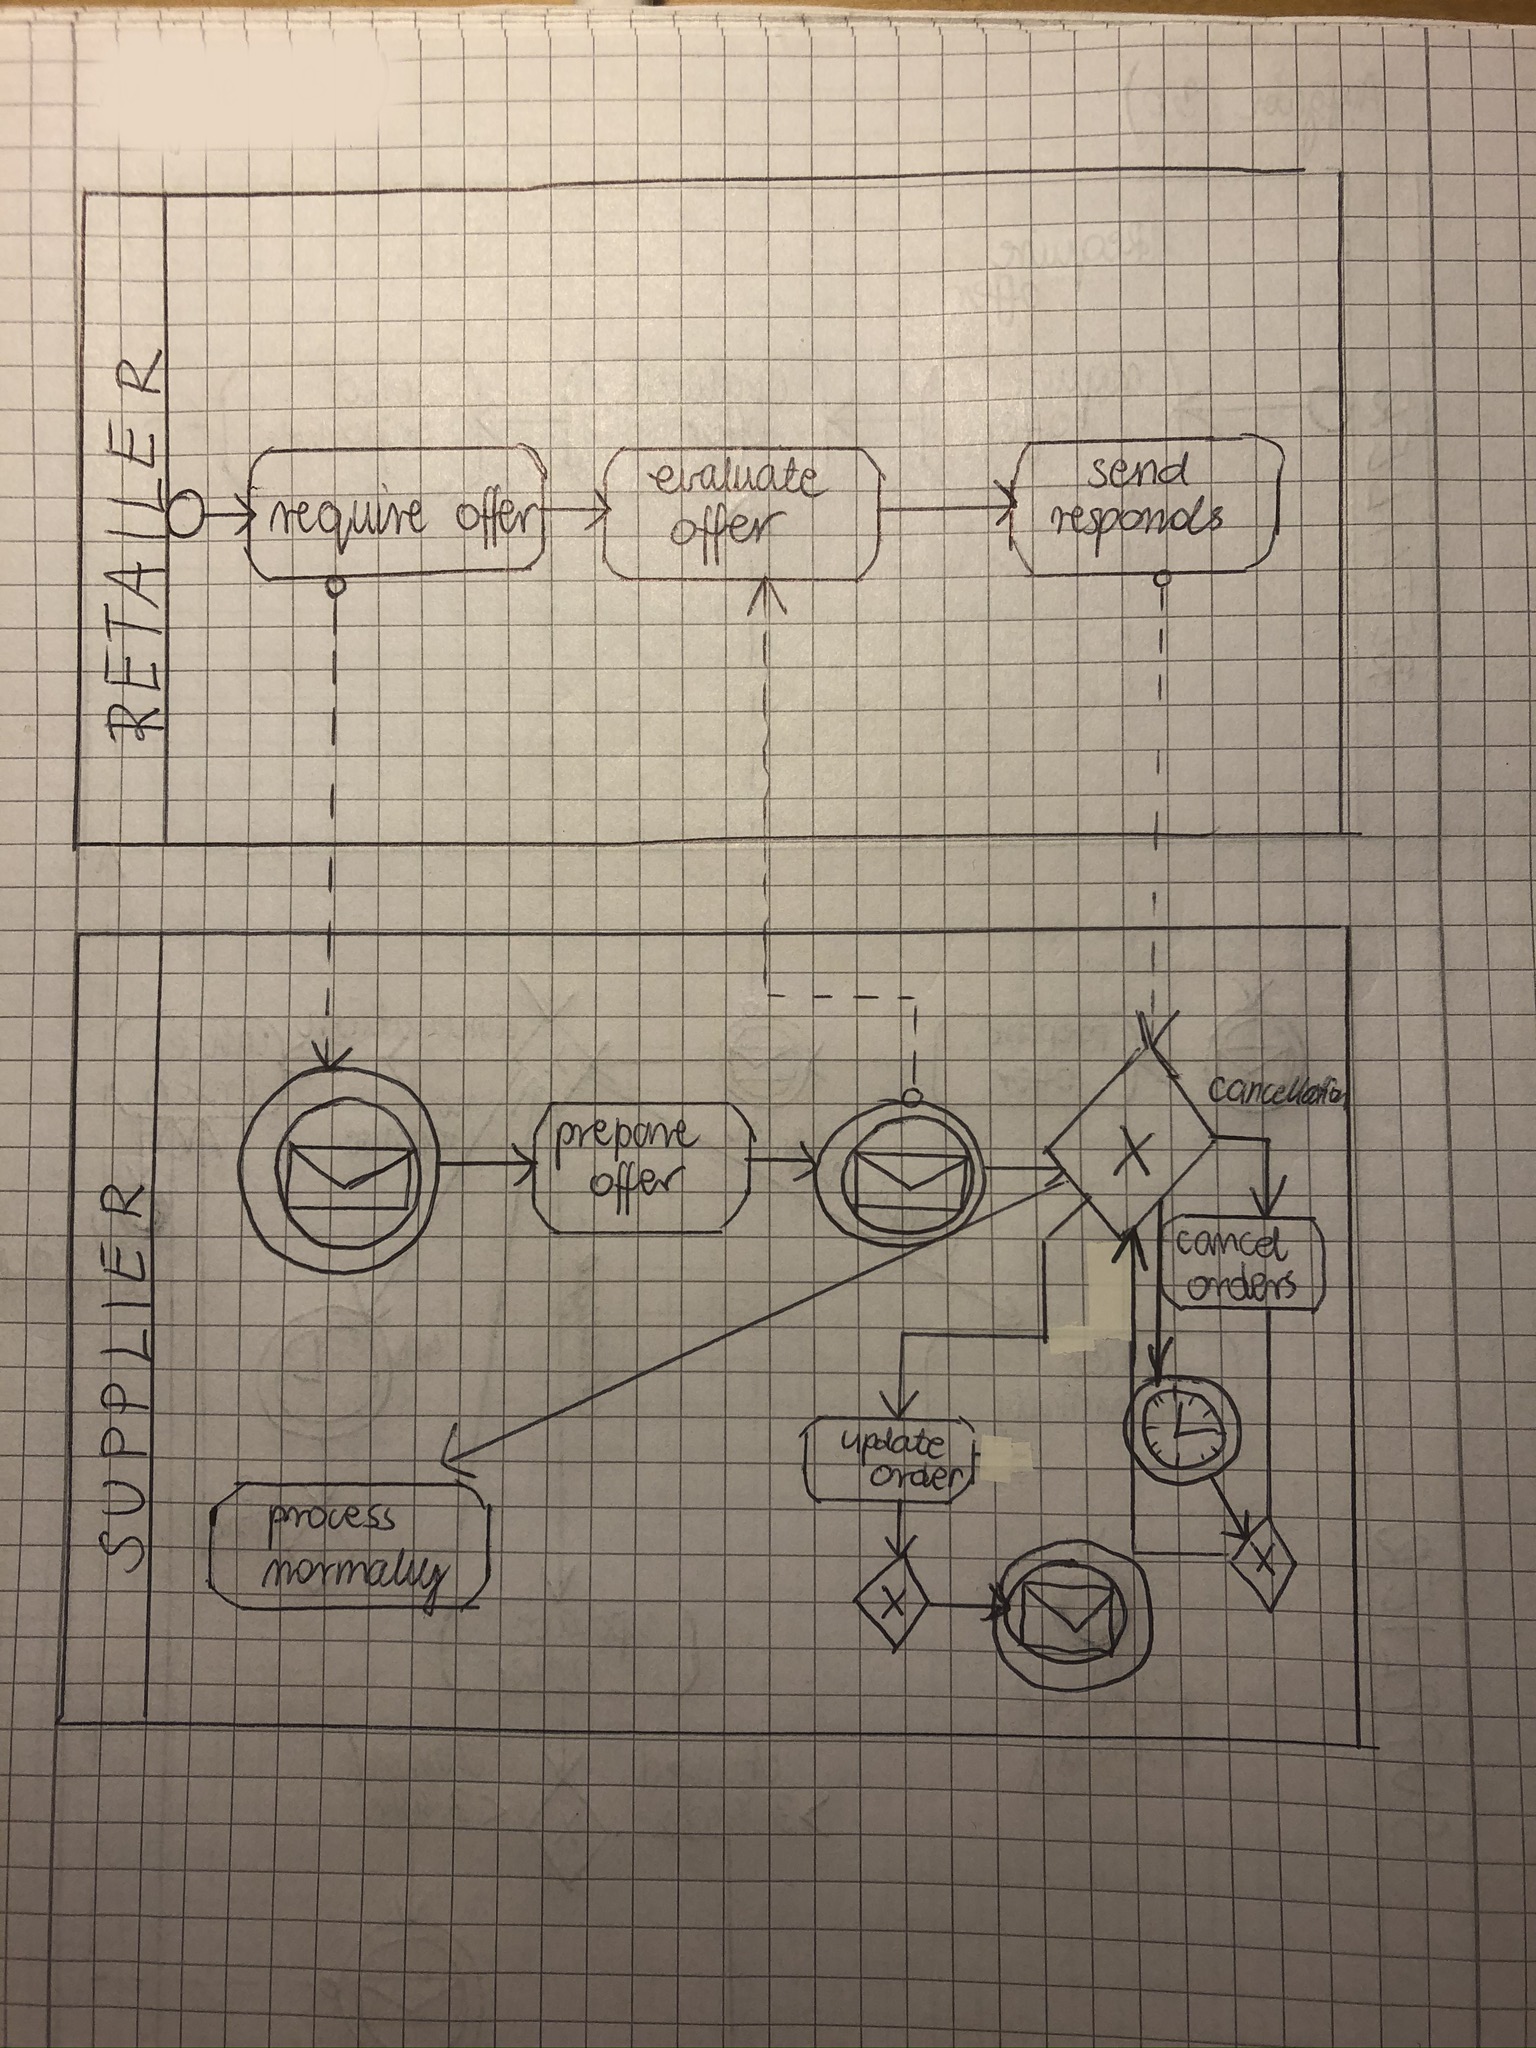 RETAILER
require offer
evaluate
offer
send
responds
SUPPLIER
prepare
offer
X
cancellation
cancel
orders
update
order
process
normally
X
X